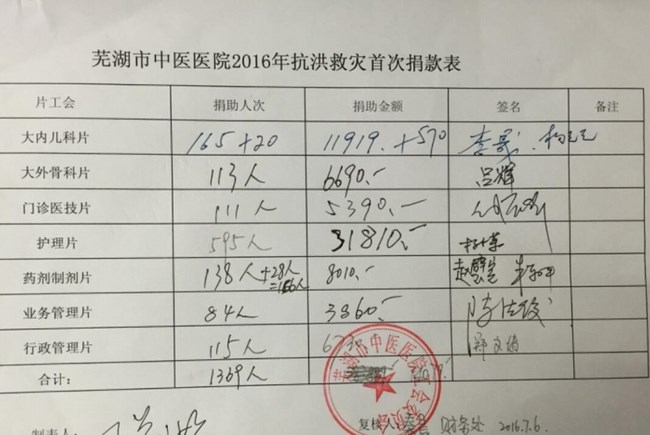 芜湖市中医医院2016年抗洪救灾首次捐款表
片工会 捐助人次 捐助金额 签名 备注
大内儿科片 165+20 11919.+570
大外骨科片 113人 6690.- 吕辉
门诊医技片 111人 5390.-
护理片 595人 31810.-
药剂制剂片 138人+28人=166人 8010.-
业务管理片 84人 3360.-
行政管理片 115人
合计: 1369人
芜湖市中医医院工会委员会
制表人: 复核人: 财务处 2016.7.6.